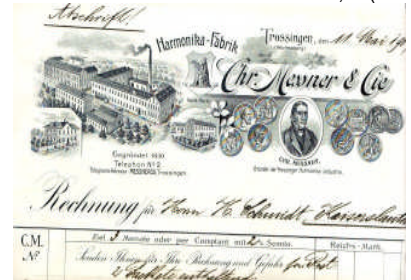 Abschrift!
Harmonika-Fabrik
Trossingen, den 11. Mai
Chr. Messner & Cie
Gegründet 1830
Telephon No 2
Telegramm-Adresse MESSNERCO Trossingen
CHR. MESSNER,
Gründer der Trossinger Harmonika-Industrie.
Rechnung für Herrn H. Schmidt, Kaiserslautern
C.M.
Ziel 3 Monate oder per Comptant mit 2% Sconto.
Reichs-Mark.
No
Senden Ihnen für Ihre Rechnung und Gefahr